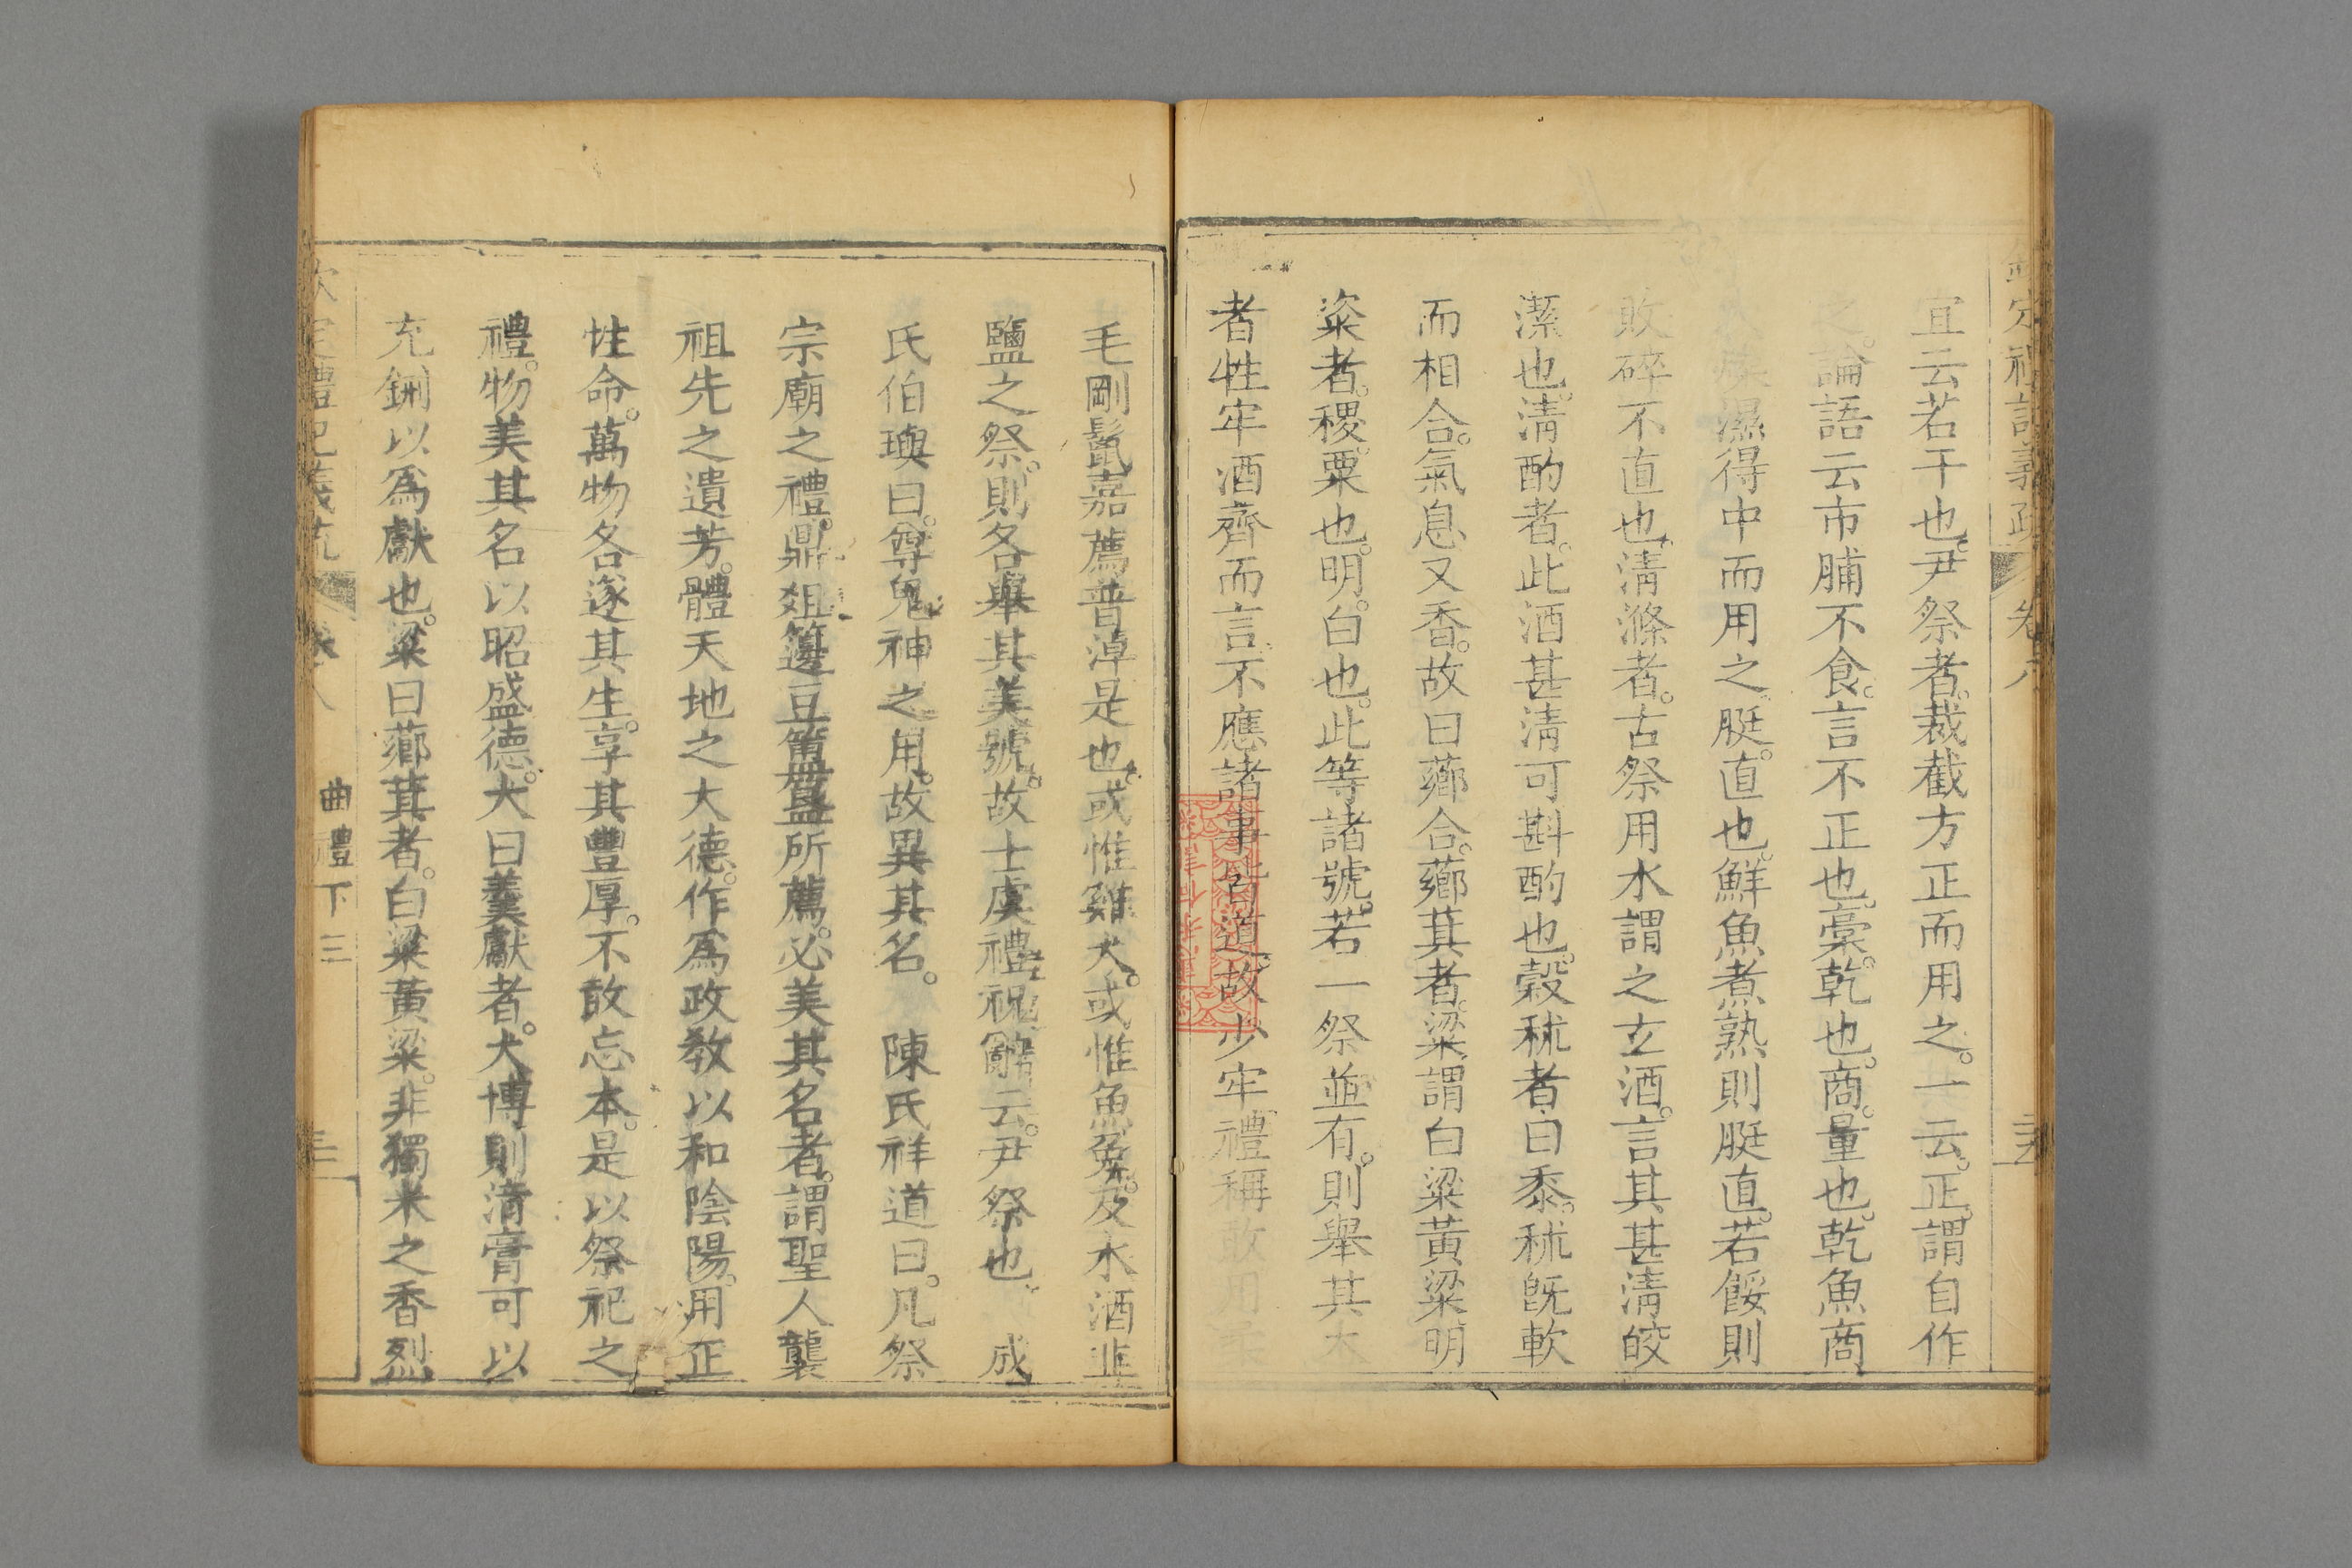 宜云若干也。尹祭者。裁截方正而用之。一云。正。謂自作
之。論語云市脯不食。言不正也。槀。乾也。商。量也。乾魚商
燥濕得中而用之。脡。直也。鮮魚煮熟則脡直。若餒則
敗碎不直也。淸滌者。古祭用水謂之玄酒。言其甚淸皎
潔也。淸酌者。此酒甚淸可斟酌也。穀秫者曰黍。秫旣軟
而相合。氣息又香。故曰薌合。薌萁者。粱謂白粱黃粱明
粢者。稷。粟也。明。白也。此等諸號。若一祭並有。則舉其大
者牲牢酒齊而言。不應諸事皆道。故少牢禮稱敢用柔
毛剛鬣嘉薦普淖是也。或惟雞犬。或惟魚兔。及水酒韭
鹽之祭。則各舉其美號。故士虞禮祝辭云。尹祭也 成
氏伯璵曰。尊鬼神之用。故異其名。 陳氏祥道曰。凡祭
宗廟之禮。鼎俎籩豆簠簋所薦。必美其名者。謂聖人襲
祖先之遺芳。體天地之大德。作爲政敎以和陰陽。用正
性命。萬物各遂其生。享其豐厚。不敢忘本。是以祭祀之
禮。物美其名以昭盛德。犬曰羹獻者。犬博則淸膏可以
充鉶以爲獻也。粱曰薌萁者。白粱黃粱。非獨米之香烈
欽定禮記義疏 卷八 曲禮下三